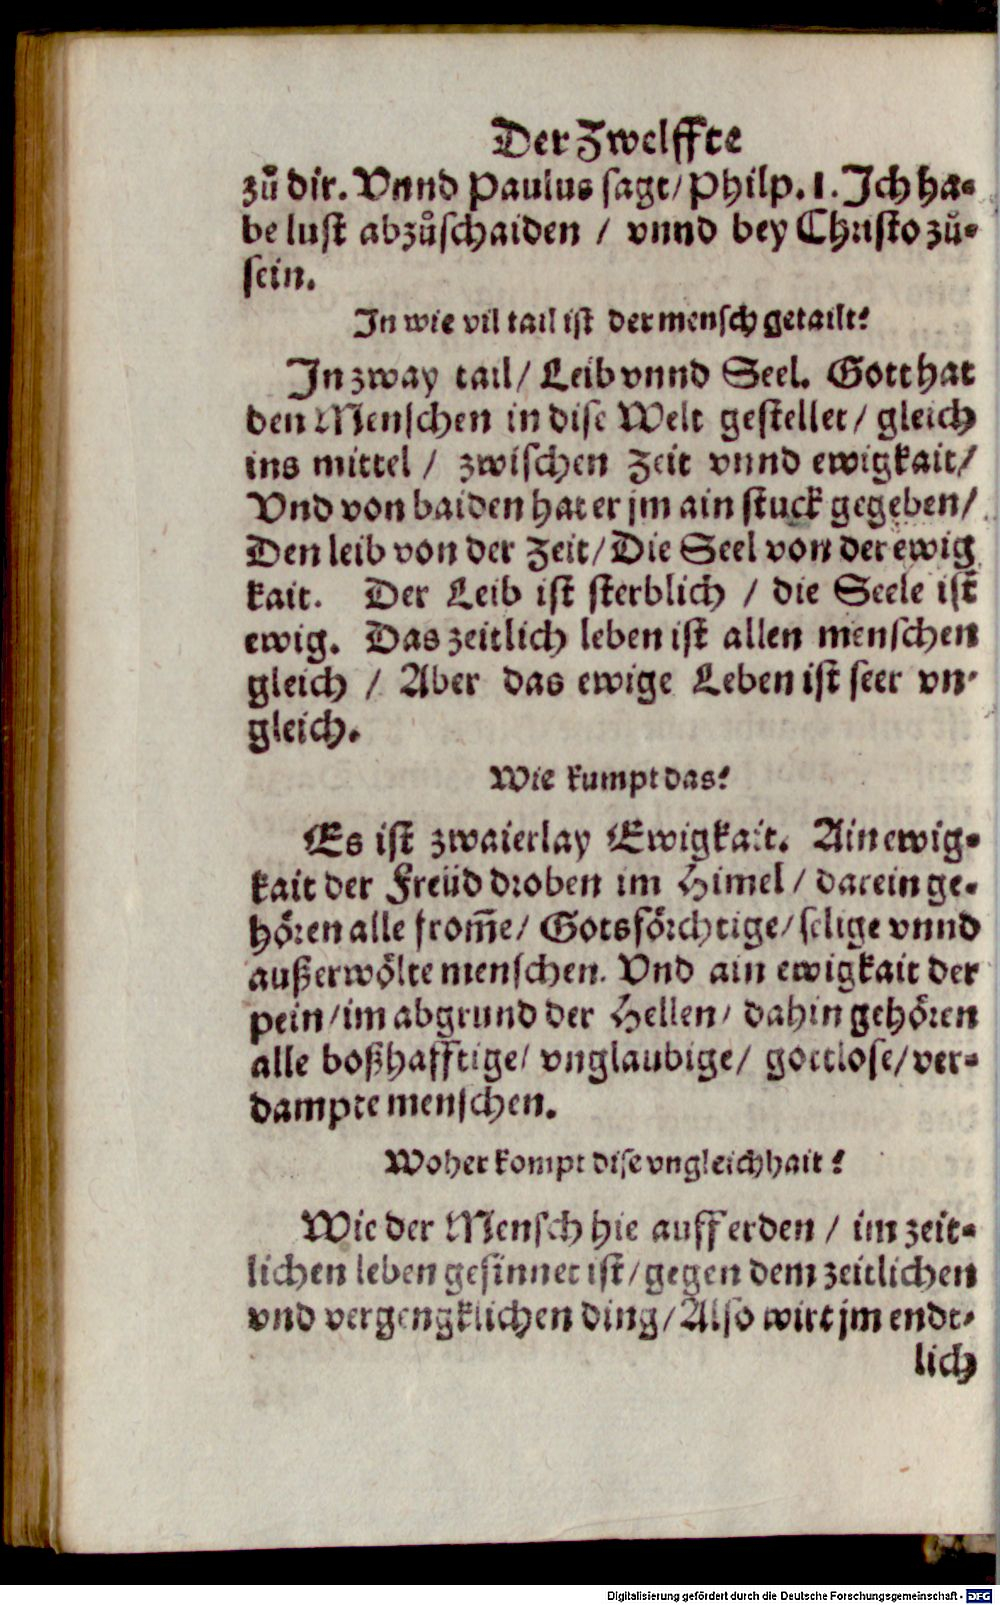 Der Zwelffte
zů dir. Vnnd Paulus sagt/ Philp. 1. Ich ha-
be lust abzůschaiden / vnnd bey Christo zů-
sein.
In wie vil tail ist der mensch getailt?
In zway tail/ Leib vnnd Seel. Gott hat
den Menschen in dise Welt gestellet/ gleich
ins mittel / zwischen Zeit vnnd ewigkait/
Vnd von baiden hat er jm ain stuck gegeben/
Den leib von der Zeit/ Die Seel von der ewig
kait. Der Leib ist sterblich / die Seele ist
ewig. Das zeitlich leben ist allen menschen
gleich / Aber das ewige Leben ist seer vn-
gleich.
Wie kumpt das?
Es ist zwaierlay Ewigkait. Ain ewig-
kait der Freüd droben im Himel / darein ge-
hören alle from̃e/ Gotsförchtige/ selige vnnd
außerwölte menschen. Vnd ain ewigkait der
pein/ im abgrund der Hellen/ dahin gehören
alle boßhafftige/ vnglaubige/ gottlose/ ver-
dampte menschen.
Woher kompt dise vngleichhait?
Wie der Mensch hie auff erden / im zeit-
lichen leben gesinnet ist/ gegen dem zeitlichen
vnd vergengklichen ding/ Also wirt jm endt-
lich
Digitalisierung gefördert durch die Deutsche Forschungsgemeinschaft - DFG